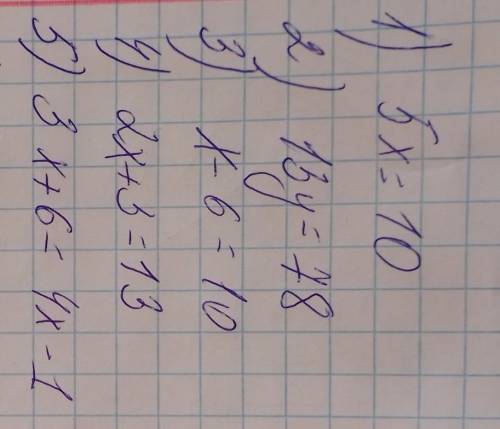 1) 5x = 10
2) 13y = 78
3) x - 6 = 10
4) 2x + 3 = 13
5) 3x + 6 = 4x - 1